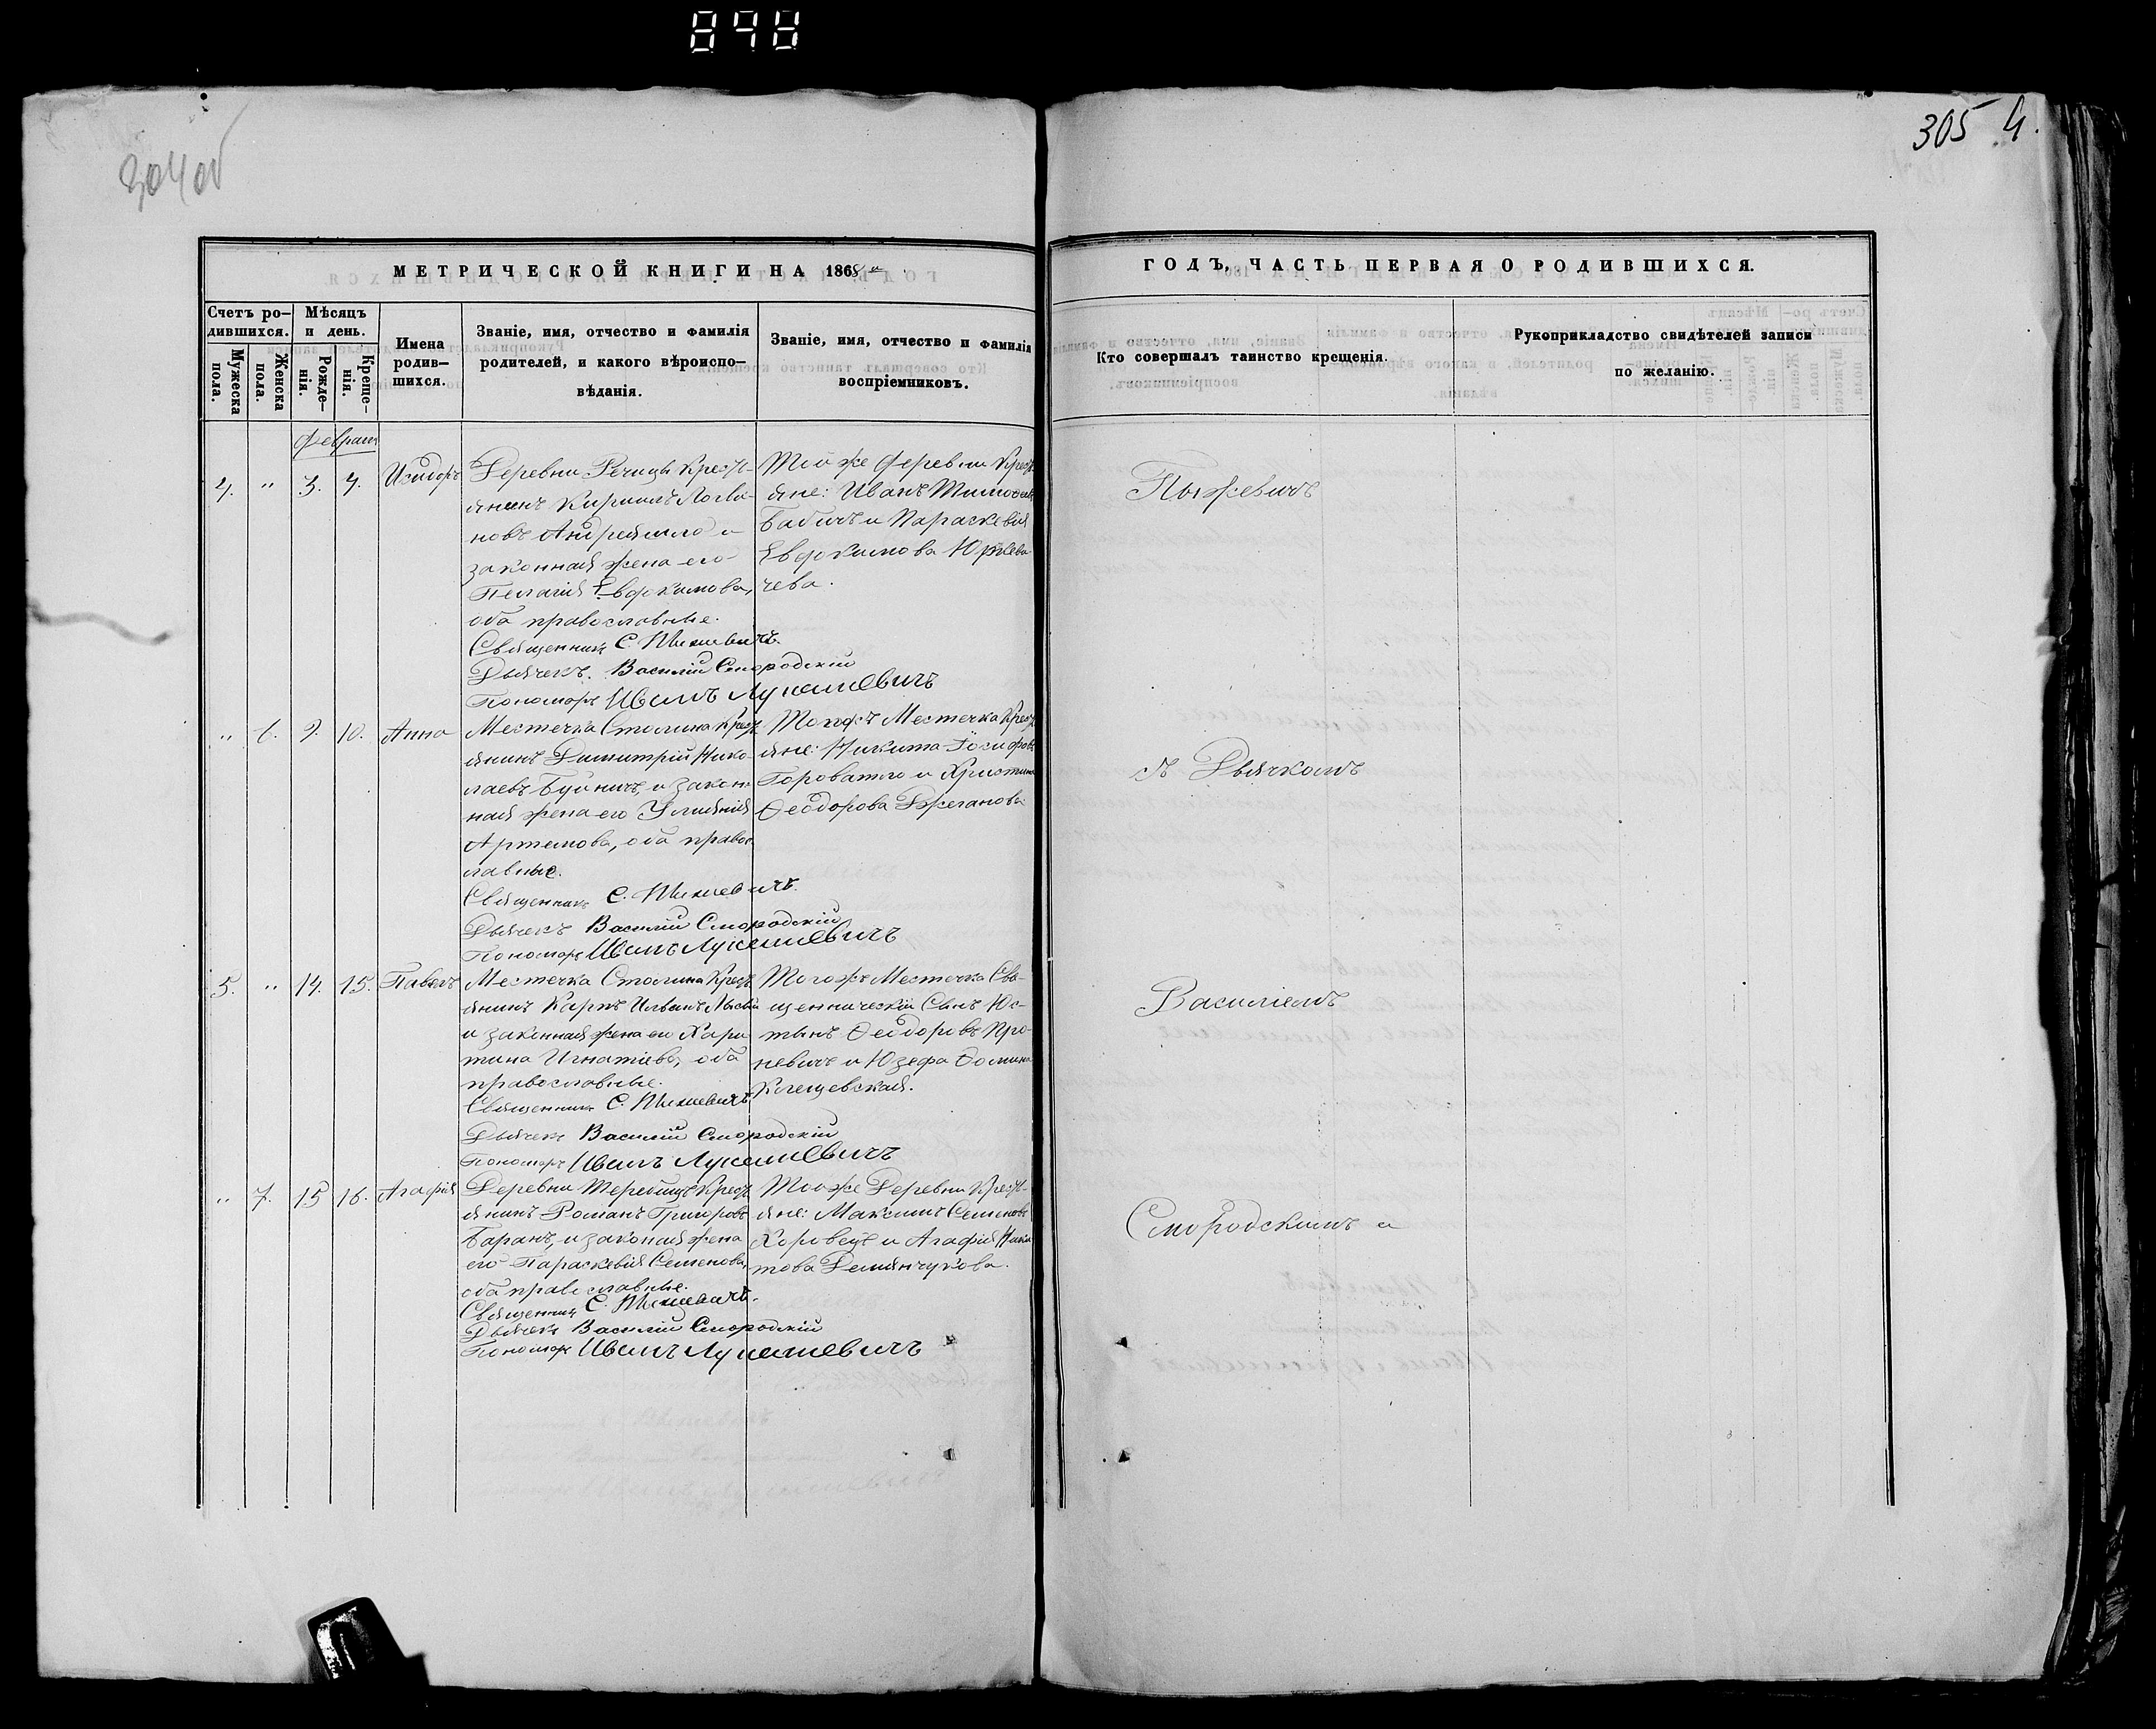 304 об
305 4.
МЕТРИЧЕСКОЙ КНИГИ НА 1868 й
ГОДЪ, ЧАСТЬ ПЕРВАЯ О РОДИВШИХСЯ.
Счетъ ро-
дившихся.
Мужеска
пола.
Женска
пола.
Мѣсяцъ
и день.
Рожде-
нія.
Креще-
нія.
Имена
родив-
шихся.
Званіе, имя, отчество и фамилія
родителей, и какого вѣроиспо-
вѣданія.
Званіе, имя, отчество и фамилія
воспріемниковъ.
Кто совершалъ таинство крещенія.
Рукоприкладство свидѣтелей записи
по желанію.
Февраля
4. " 3. 4. Исидоръ
Деревни Речицы Крестъ-
янинъ Кириллъ Логви-
новъ и
законная жена его
Пелагія Евдокимова,
оба православные.
Священникъ С. Пыжевичъ.
Дьячекъ Василій Смородскій
Пономарь Иванъ Лукашевичъ
Той же деревни Кресть-
яне: Иванъ
Бабичъ и Параскевія
Евдокимова
чева.
Пыжевичъ
" 6. 9. 10. Анна
Местечка Столина Крестъ-
янинъ Димитрій Нико-
лаевъ и закон-
ная жена его Уліянія
Артемова, оба правос-
лавные.
Священникъ С. Пыжевичъ.
Дьячекъ Василій Смородскій
Пономарь Иванъ Лукашевичъ
Тогожъ Местечка Кресть-
яне: Никита Іосифовъ
Городатло и Христина
Ѳеодорова
съ Дьячкомъ
5. " 14. 15. Павелъ
Местечка Столина Крестъ-
янинъ Карпъ
и законная жена его Хари-
тина Игнатіева, оба
православные.
Священникъ С. Пыжевичъ.
Дьячекъ Василій Смородскій
Пономарь Иванъ Лукашевичъ
Тогожъ Местечка Свя-
щенническій Сынъ Юс-
тынъ Ѳеодоровъ Про-
невичъ и Юзефа
Клещевская.
Василіемъ
" 7. 15 16. Агафія
Деревни Теребищъ Крестъ-
янинъ Романъ Григоровъ
Баранъ, и законая жена
его Параскевія Семенова,
оба православные.
Священникъ С. Пыжевичъ.
Дьячекъ Василій Смородскій
Пономарь Иванъ Лукашевичъ
Тойже Деревни Кресть-
яне: Максимъ Семеновъ
Хоровецъ и Агафія
Демянчукова.
Смородскимъ и